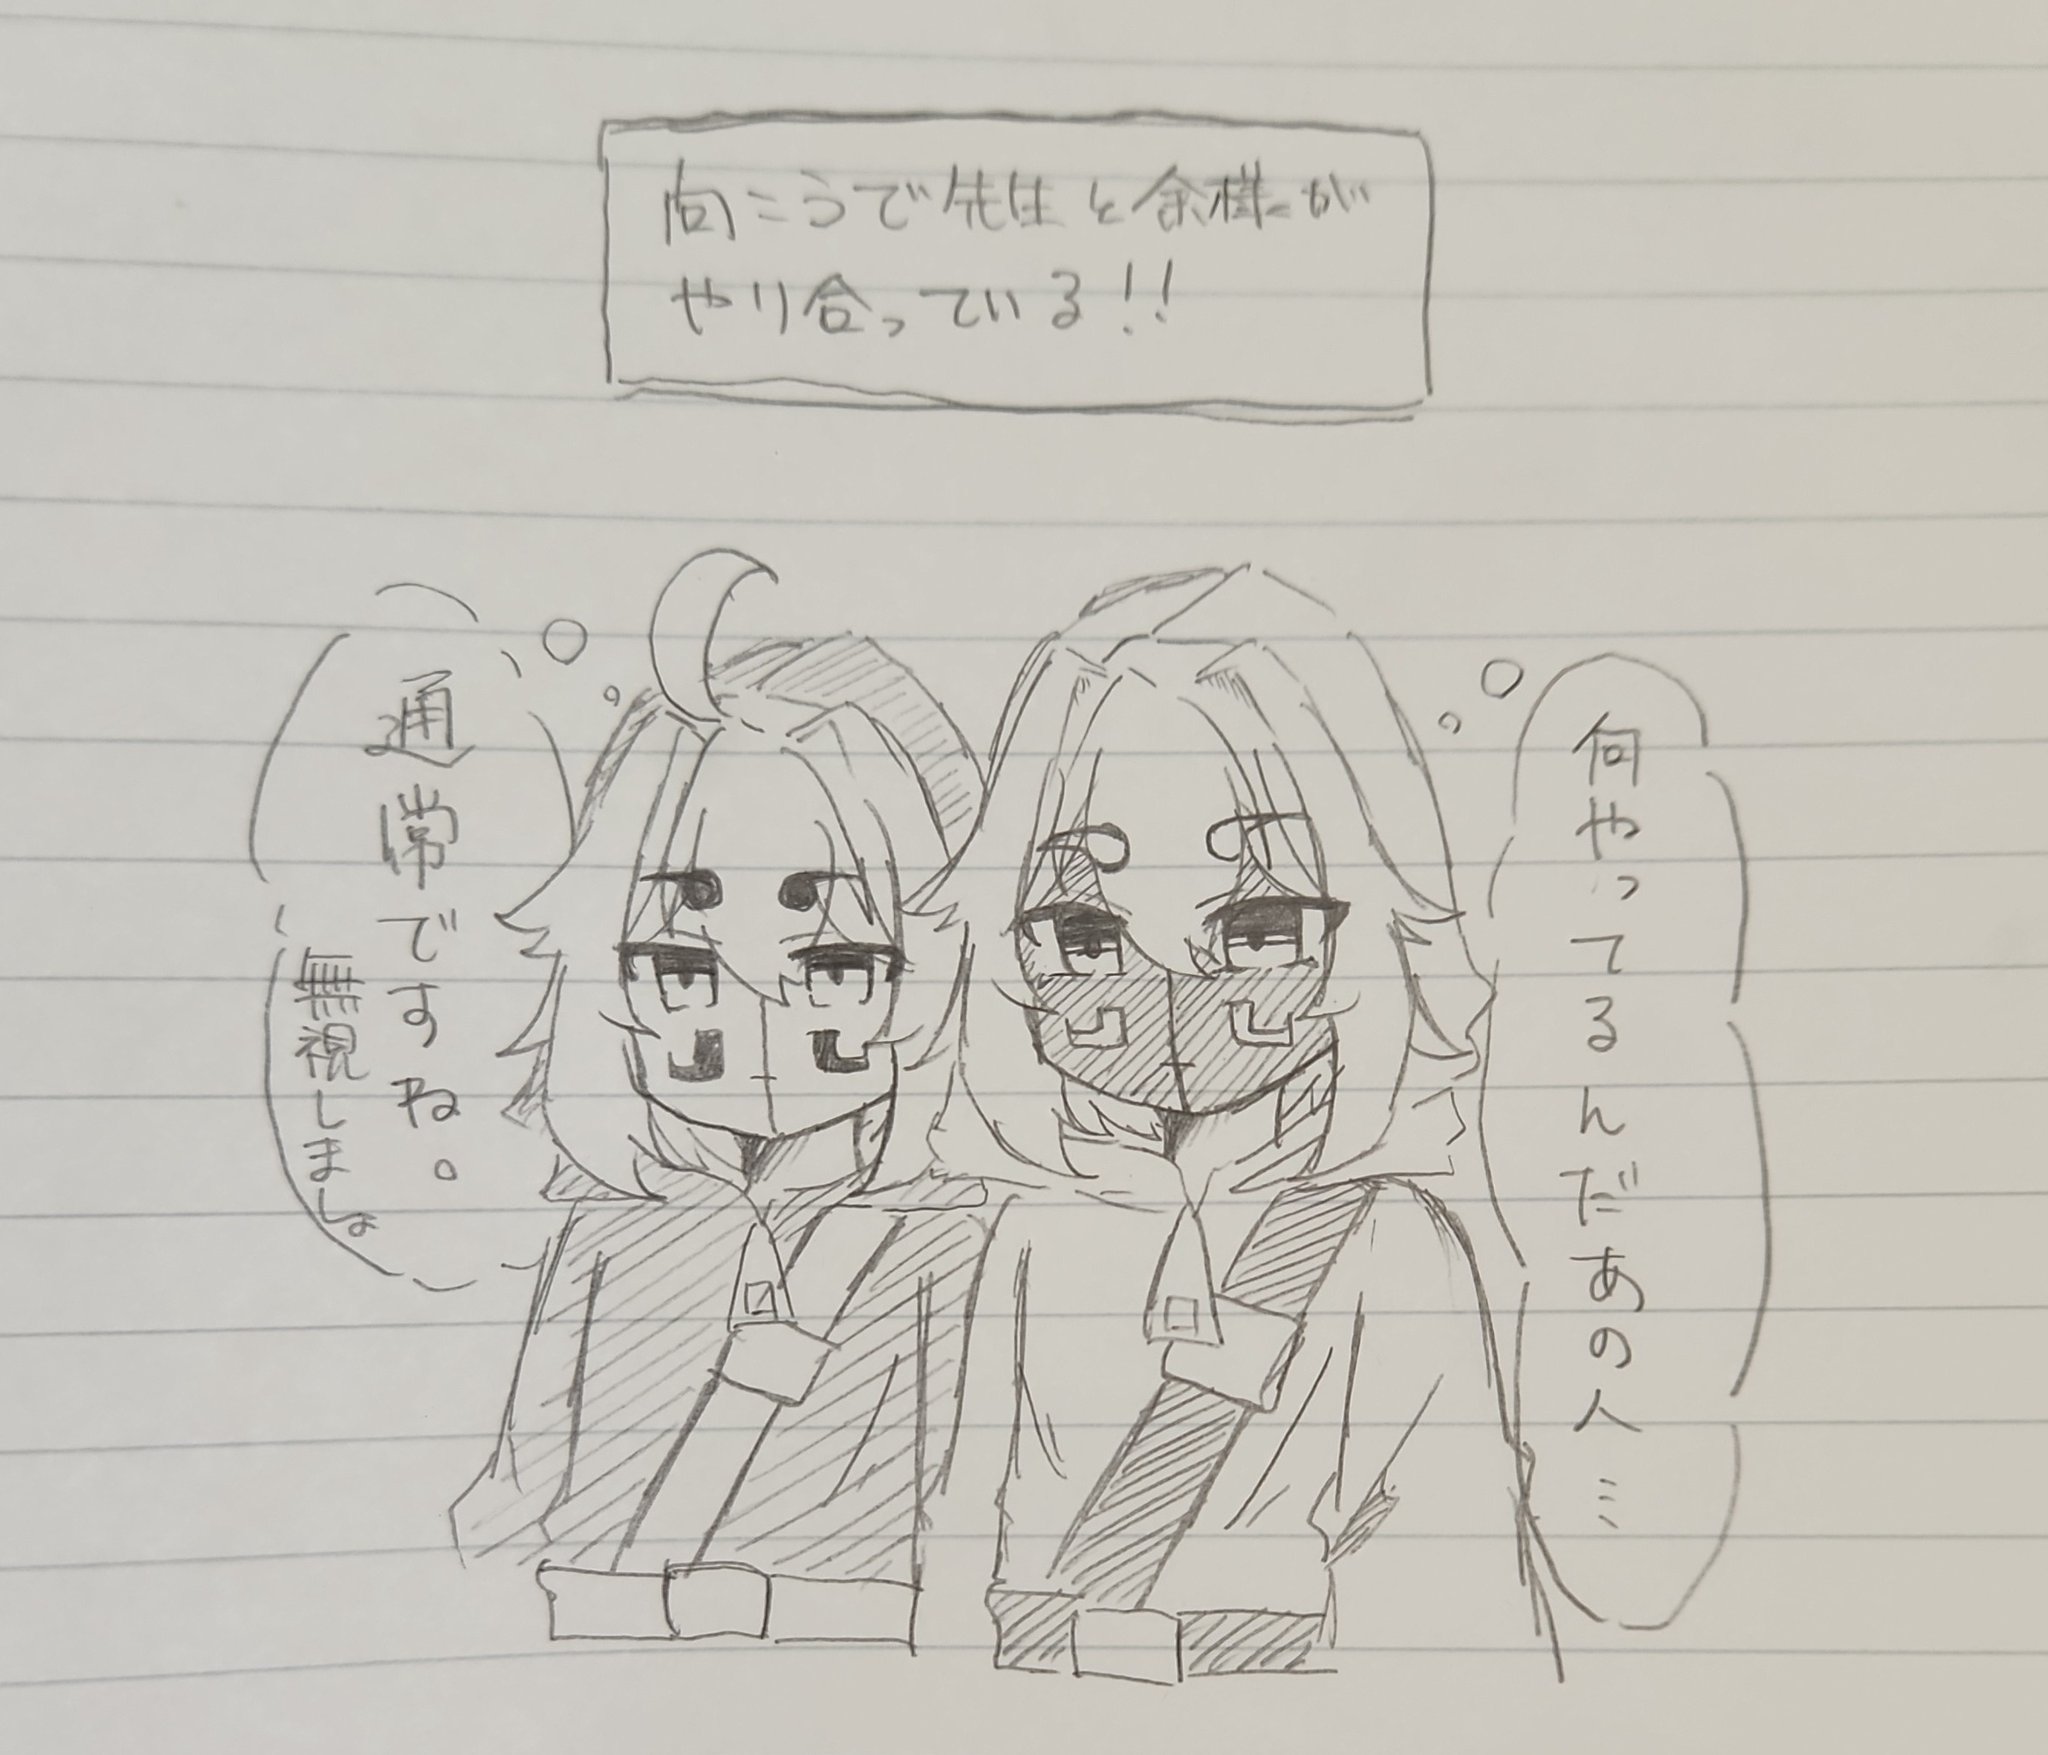 向こうで先生と余様が
やり合っている!!
何やってるんだあの人…
通常ですね。
無視しましょ